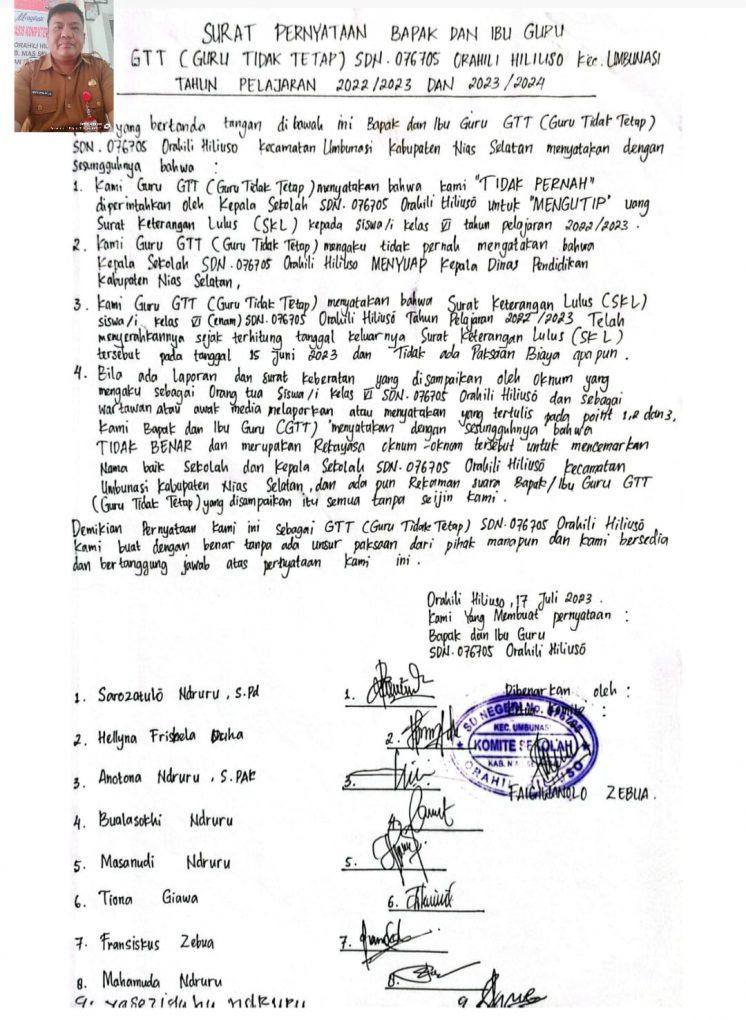 SURAT PERNYATAAN BAPAK DAN IBU GURU
GTT (GURU TIDAK TETAP) SDN.076705 ORAHILI HILIUSO Kec.UMBUNASI
TAHUN PELAJARAN 2022/2023 DAN 2023/2024
yang bertanda tangan di bawah ini Bapak dan Ibu Guru GTT (Guru Tidak Tetap)
SDN.076705 Orahili Hiliuso Kecamatan Umbunasi Kabupaten Nias Selatan menyatakan dengan
Sesungguhnya bahwa :
1. Kami Guru GTT (Guru Tidak Tetap) menyatakan bahwa kami "TIDAK PERNAH"
diperintahkan oleh Kepala Sekolah SDN.076705 Orahili Hiliusö untuk "MENGUTIP" uang
Surat Keterangan Lulus (SKL) kepada siswa/i kelas VI tahun pelajaran 2022/2023.
2. Kami Guru GTT (Guru Tidak Tetap) mengaku tidak pernah mengatakan bahwa
Kepala Sekolah SDN.076705 Orahili Hiliuso MENYUAP Kepala Dinas Pendidikan
Kabupaten Nias Selatan,
3. Kami Guru GTT (Guru Tidak Tetap) menyatakan bahwa Surat Keterangan Lulus (SKL)
siswa/i kelas VI (enam) SDN.076705 Orahili Hiliusö Tahun Pelajaran 2022/2023 Telah
menyerahkannya sejak terhitung tanggal keluarnya Surat Keterangan Lulus (SKL)
tersebut pada tanggal 15 Juni 2023 dan Tidak ada Paksaan Biaya apa pun.
4. Bila ada Laporan dan surat keberatan yang disampaikan oleh oknum yang
mengaku sebagai Orang tua Siswa/i kelas VI SDN.076705 Orahili Hiliusö dan sebagai
wartawan atau awak media melaporkan atau menyatakan yang tertulis pada point 1,2 dan 3,
Kami Bapak dan Ibu Guru (GTT) menyatakan dengan sesungguhnya bahwa
TIDAK BENAR dan merupakan Rekayasa oknum-oknum tersebut untuk mencemarkan
Nama baik Sekolah dan Kepala Sekolah SDN.076705 Orahili Hiliusö Kecamatan
Umbunasi Kabupaten Nias Selatan, dan ada pun Rekaman suara Bapak/Ibu Guru GTT
(Guru Tidak Tetap) yang disampaikan itu semua tanpa seijin kami.
Demikian Pernyataan kami ini sebagai GTT (Guru Tidak Tetap) SDN.076705 Orahili Hiliusö
Kami buat dengan benar tanpa ada unsur paksaan dari pihak manapun dan kami bersedia
dan bertanggung jawab atas pernyataan kami ini.
Orahili Hiliuso, 17 Juli 2023.
Kami Yang Membuat pernyataan :
Bapak dan Ibu Guru
SDN.076705 Orahili Hiliusö
Dibenarkan oleh :
Komite :
SD NEGERI No. 076705
KEC. UMBUNASI
KOMITE SEKOLAH
ORAHILI HILIUSO
ZEBUA.
1. Sarozatulö Ndruru, S.Pd 1.
2. Hellyna Frisbela Duha 2.
3. Anotona Ndruru, S.PAK 3.
4. Bualasokhi Ndruru 4.
5. Masanudi Ndruru 5.
6. Tiona Giawa 6.
7. Fransiskus Zebua 7.
8. Mahamuda Ndruru 8.
9. ndruru 9.